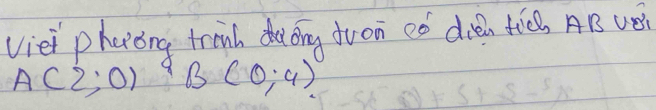 Viết phương trình đường tròn có diện tích AB với
A(2;0) B(0;4)